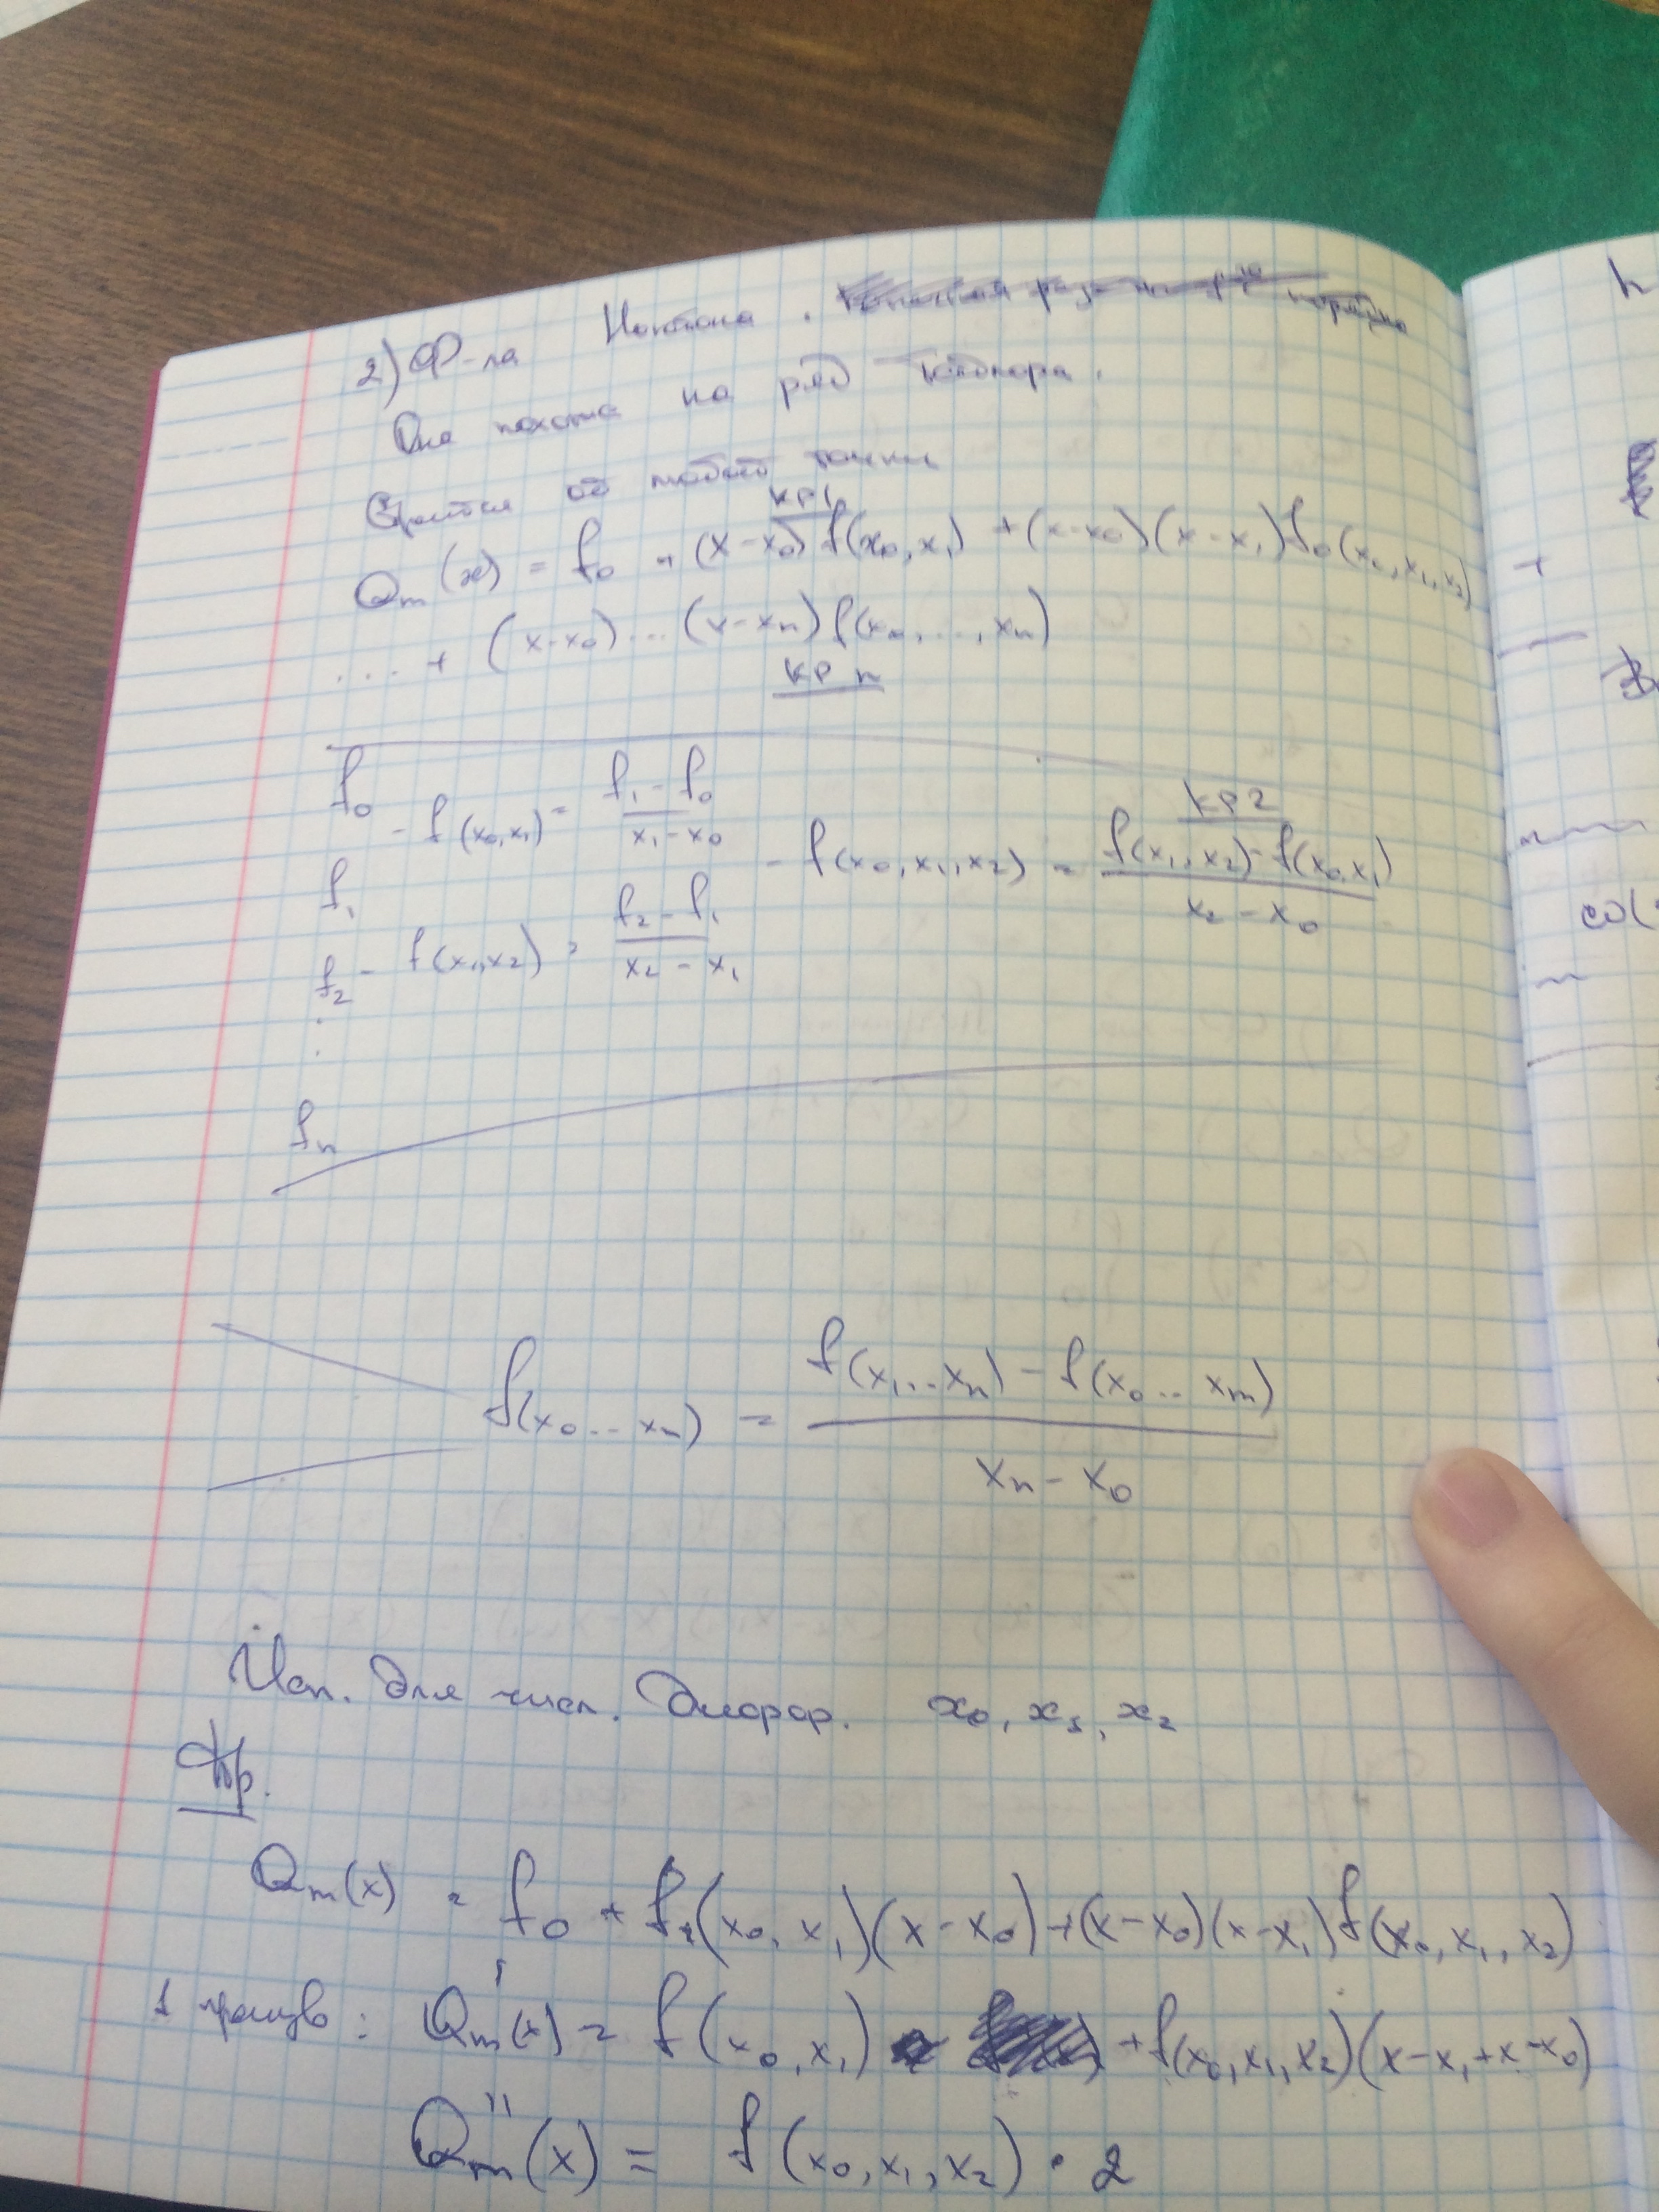 2) Ф-ла Ньютона.
Она похожа на ряд Тейлора.
Строится от любой точки
кр1
Qm(x) = f0 + (x-x0) f(x0, x1) + (x-x0)(x-x1) f0(x0, x1, x2) +
... + (x-x0)...(x-xn) f(x0, ..., xn)
кр n
f0 - f(x0, x1) = (f1 - f0)/(x1 - x0)
кр2
f1 - f(x0, x1, x2) = (f(x1, x2) - f(x0, x1))/(x2 - x0)
f2 - f(x1, x2) = (f2 - f1)/(x2 - x1)
:
fn
f(x0...xn) = (f(x1...xn) - f(x0...xm))/(xn - x0)
Исп. для числ. дифф. x0, x1, x2
Пр.
Qm(x) = f0 + f(x0, x1)(x - x0) + (x - x0)(x - x1) f(x0, x1, x2)
1 произв: Qm'(x) = f(x0, x1) + f(x0, x1, x2)(x - x1 + x - x0)
Qm''(x) = f(x0, x1, x2) · 2